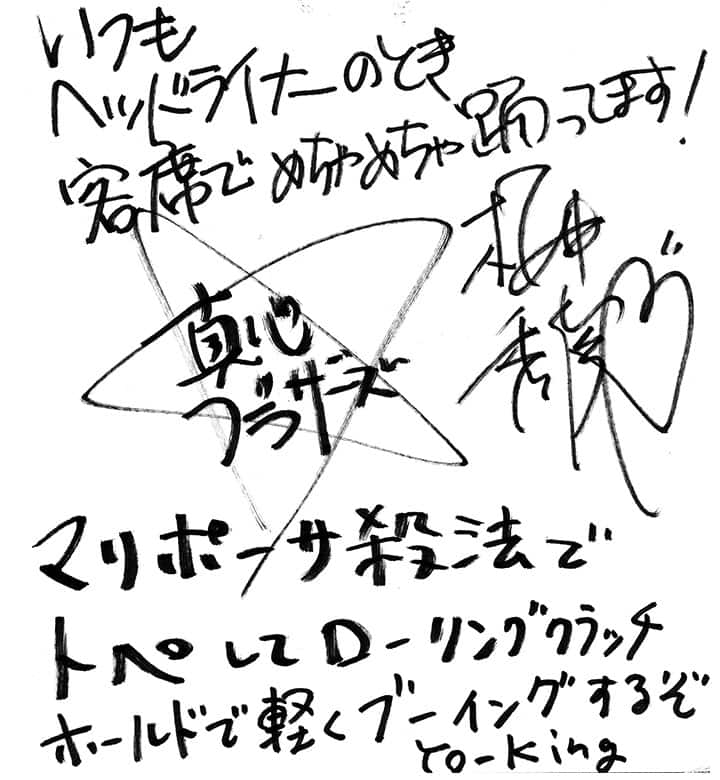 いつも
ヘッドライナーのとき
客席でめちゃめちゃ踊ってます!
桜井
秀俊
真心
ブラザーズ
マリポーサ殺法で
トペしてローリングクラッチ
ホールドで軽くブーイングするぞ
YO-King